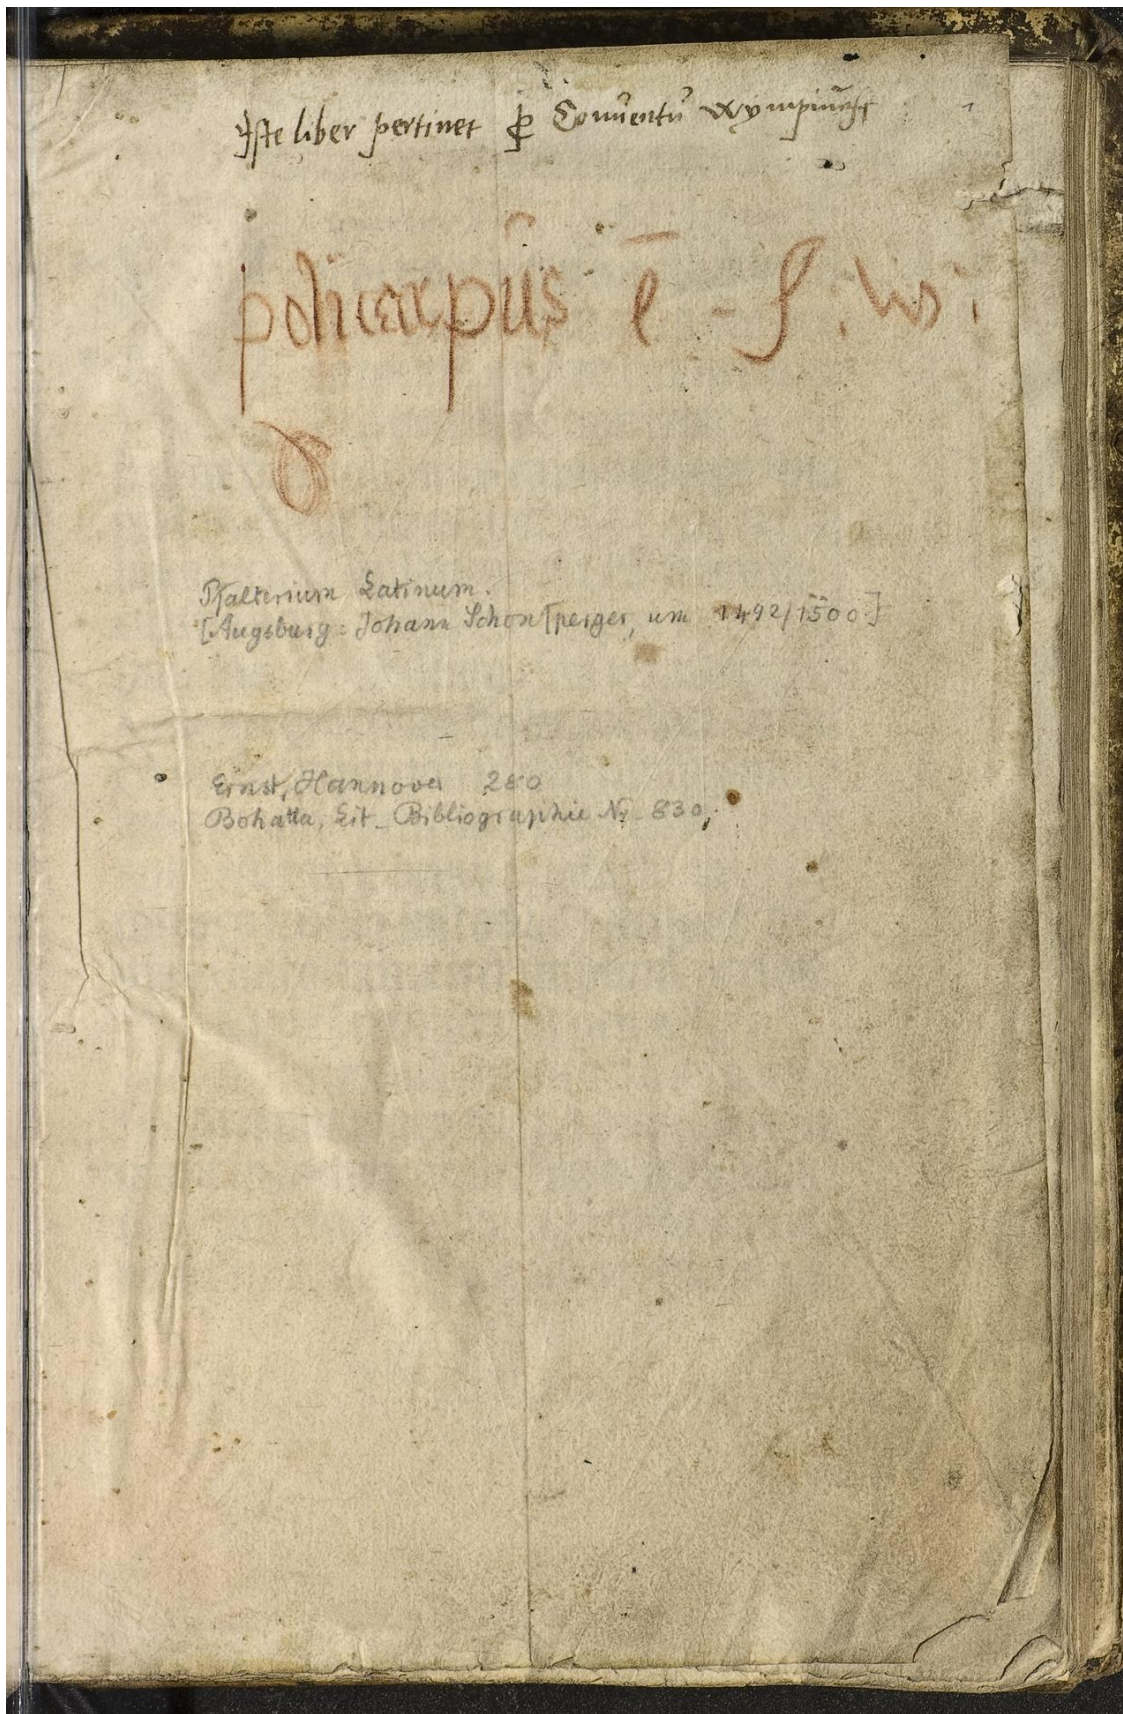 Iste liber pertinet ꝓ Conuentu
policarpus ē - S : w :
Psalterium Latinum.
[Augsburg: Johann Schönsperger, um 1492/1500]
Ernst, Hannover 280
Bohatta, Lit. Bibliographie Nr. 830,